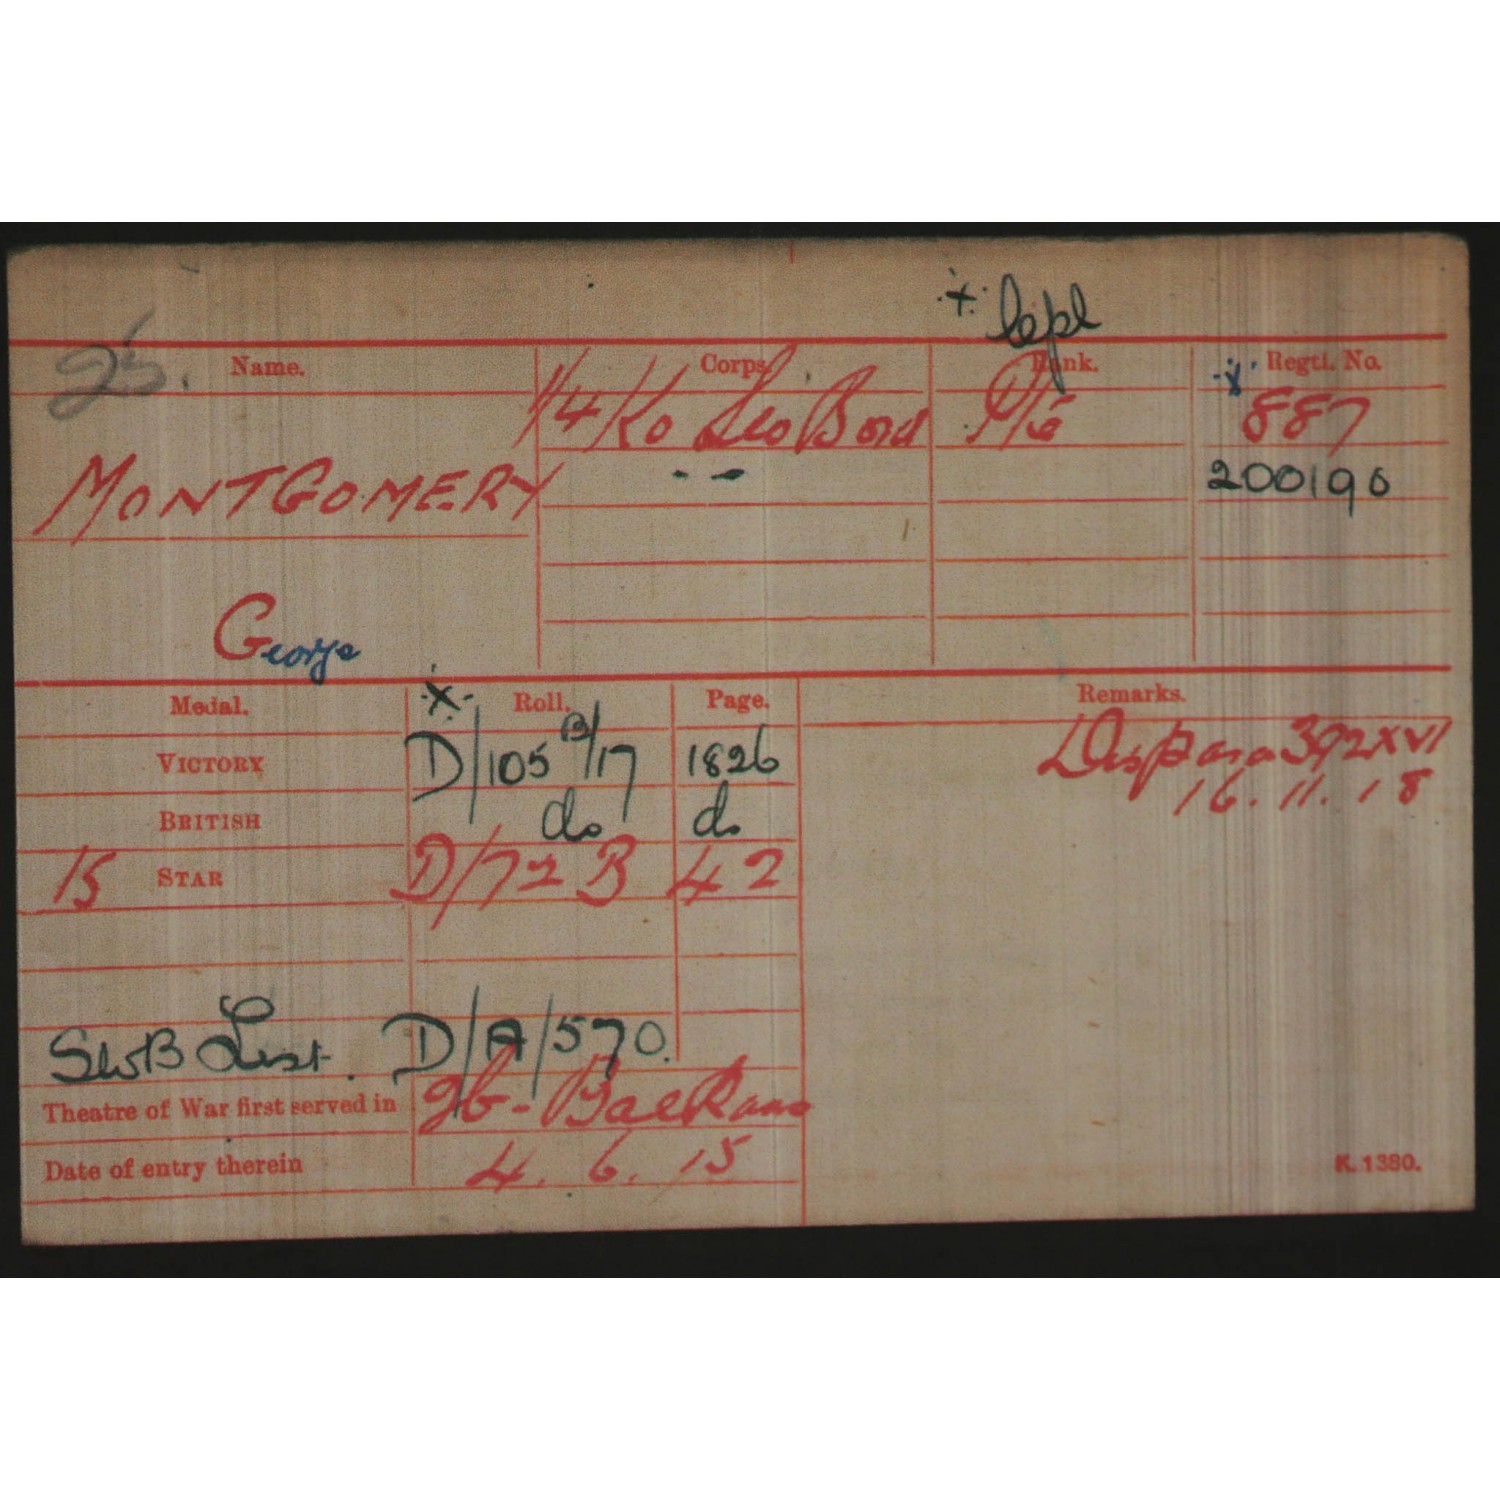 x Cpl
25. Name. Corps. Rank. x Regtl. No.
1/4 Ko Sco Bord Pte 887
MONTGOMERY - - 200190
George
Medal. x Roll. Page. Remarks.
VICTORY D/105 B/17 1826 Dis para 392 XVI
16.11.18
BRITISH do do
15 STAR D/72 B 42
SWB List. D/A/570.
Theatre of War first served in 2b - Balkans
Date of entry therein 4. 6. 15
K. 1380.